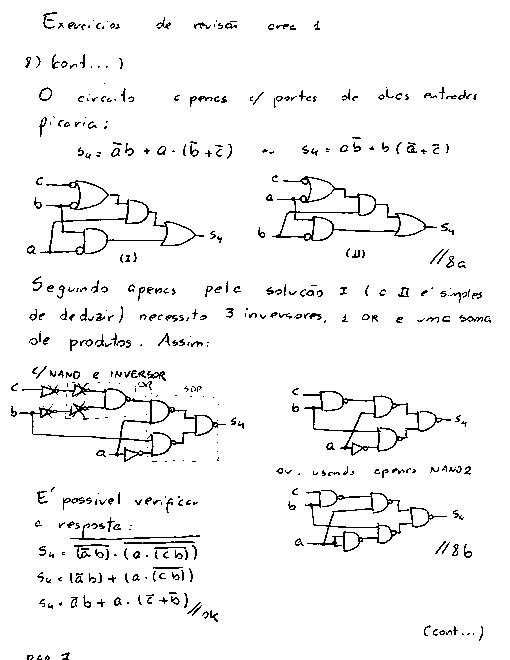 Exercícios de revisão área 1
8) (cont...)
O circuito apenas c/ portas de duas entradas
ficaria:
S₄ = a̅b + a·(b̅+c̅) ou S₄ = ab̅ + b(a̅+c̅)
c
b
a
S₄
(I)
c
a
b
S₄
(II)
//8a
Seguindo apenas pela solução I (a II é simples
de deduzir) necessito 3 inversores, 1 OR e uma soma
de produtos. Assim:
c/ NAND e INVERSOR
OR
SOP
c
b
a
S₄
c
b
a
S₄
ou, usando apenas NAND2
c
b
a
S₄
//8b
É possível verificar
a resposta:
S₄ = \overline{\overline{(a̅b)}·\overline{(a·\overline{(cb)})}}
S₄ = (a̅b) + (a·\overline{(cb)})
S₄ = a̅b + a·(c̅+b̅) //ok
(cont...)